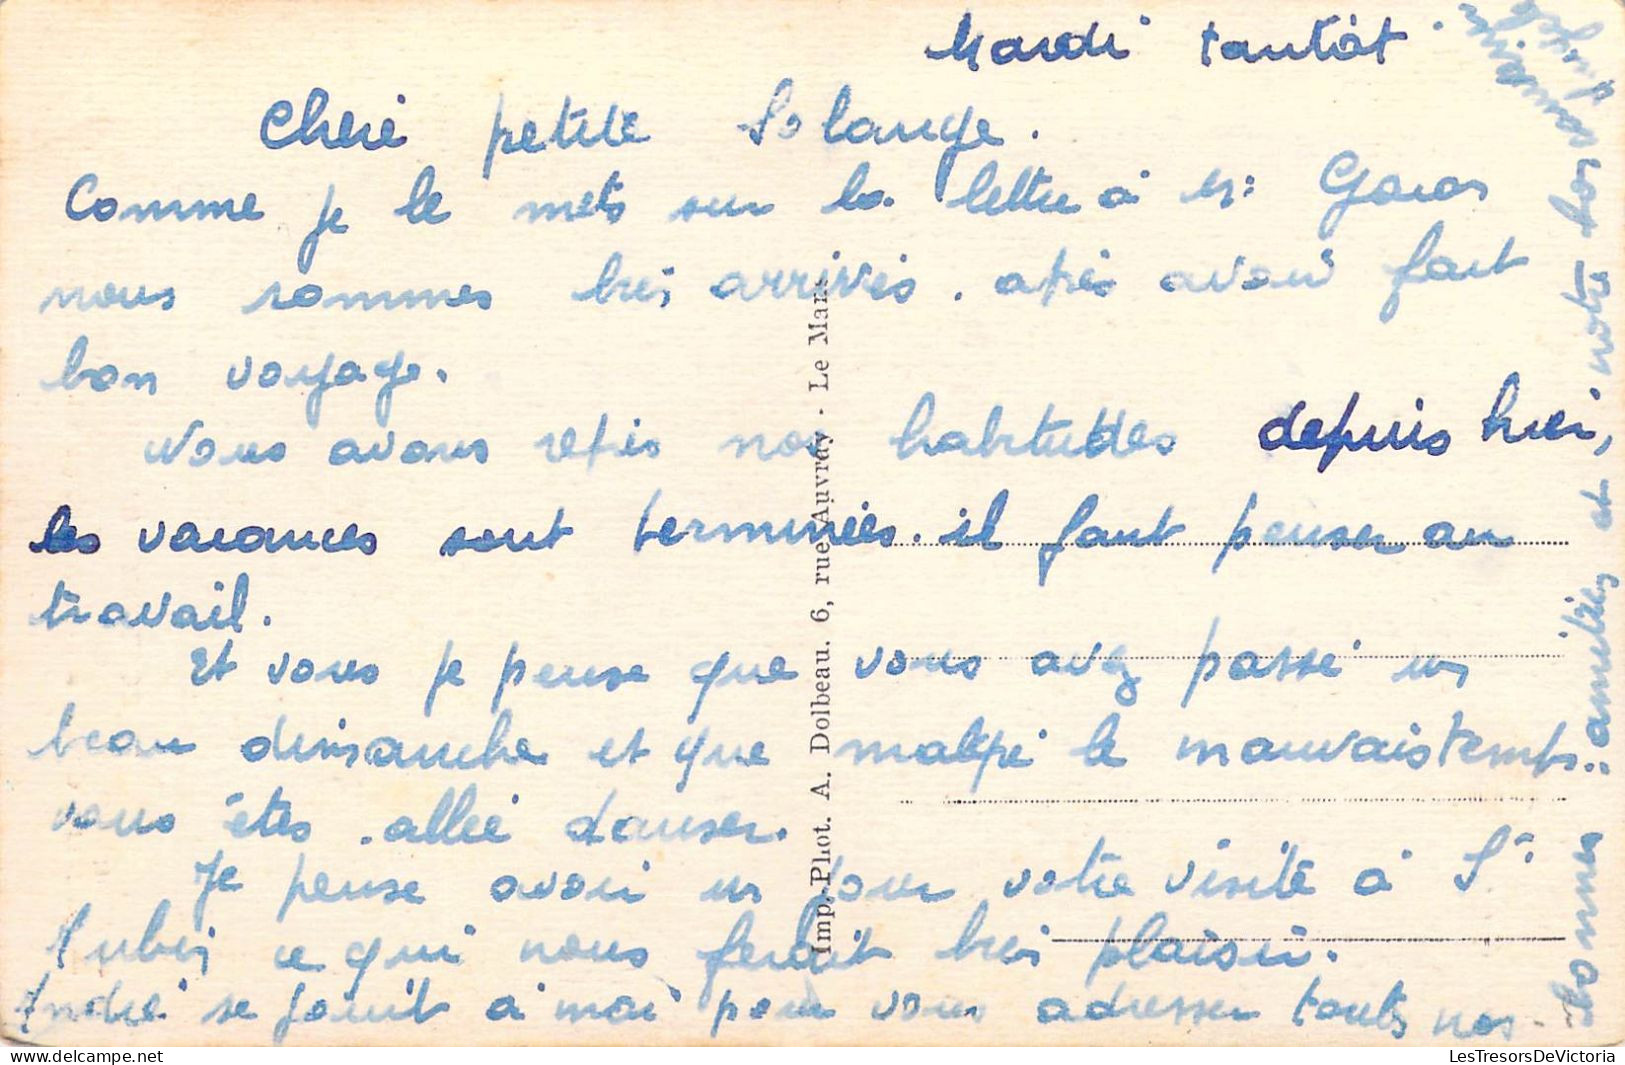 Mardi tantôt
Cheré petite Solange.
Comme je le mets sur la lettre à
nous sommes bien arrivés. après avoir fait
bon voyage.
Nous avons repris nos habitudes depuis hier,
les vacances sont terminées. il faut penser au
travail.
Et vous je pense que vous avez passé un
beau dimanche et que malgré le mauvais temps..
vous êtes allée danser.
Je pense avoir un jour votre visite à St
Aubin ce qui nous ferait bien plaisir.
André se joint à moi pour vous adresser toutes nos
bonnes amitiés et notre bon souvenir
Imp. Phot. A. Dolbeau. 6, rue Auvray - Le Mans
LesTresorsDeVictoria